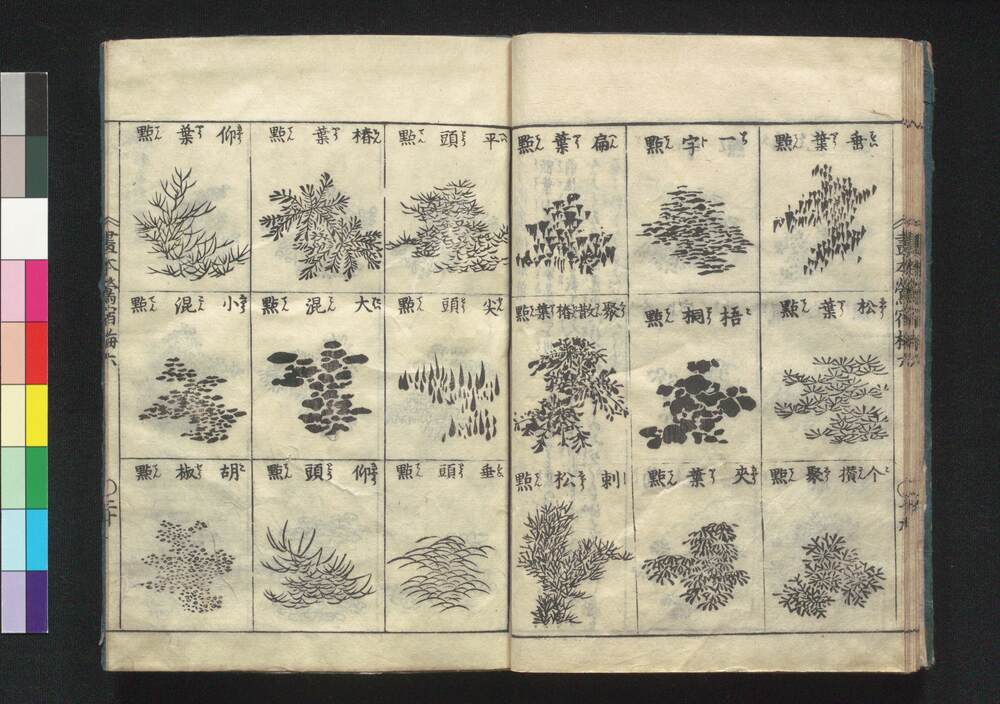 畫本鶯宿梅六
垂葉點
一字點
扁葉點
松葉點
梧桐點
聚散椿葉點
个攢聚點
夾葉點
刺松點
平頭點
椿葉點
仰葉點
尖頭點
大混點
小混點
垂頭點
仰頭點
胡椒點
畫本鶯宿梅六
二十